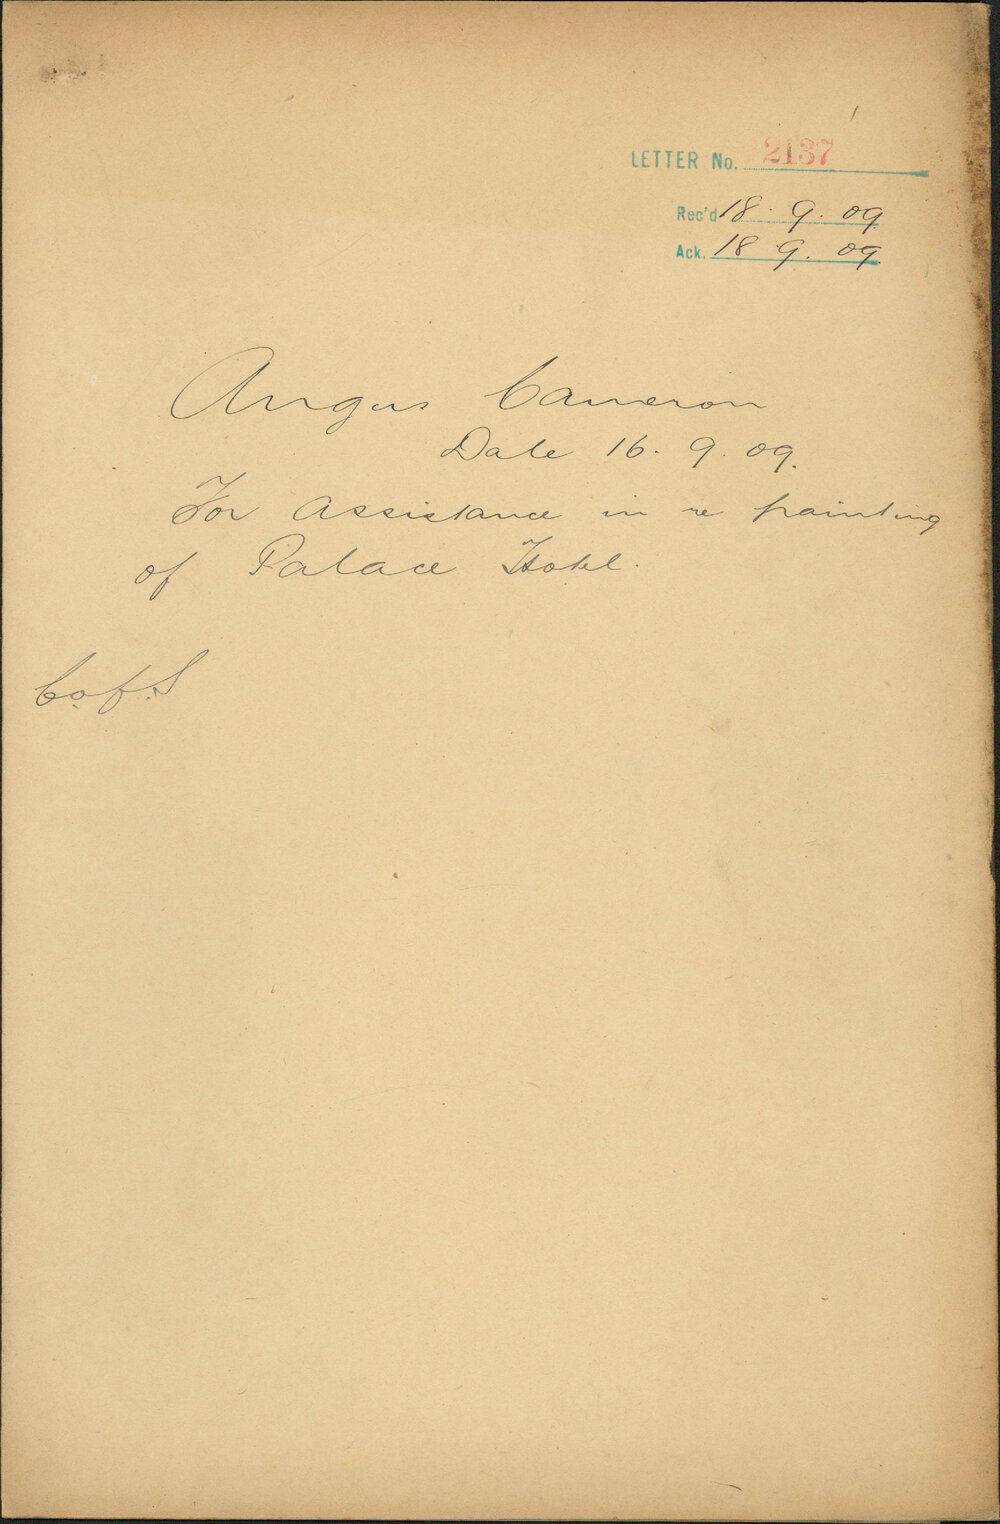 LETTER No. 2137
Rec'd 18. 9. 09
Ack. 18 9. 09
Angus Cameron
Date 16. 9. 09.
For assistance in re painting
of Palace Hotel.
C. of. S